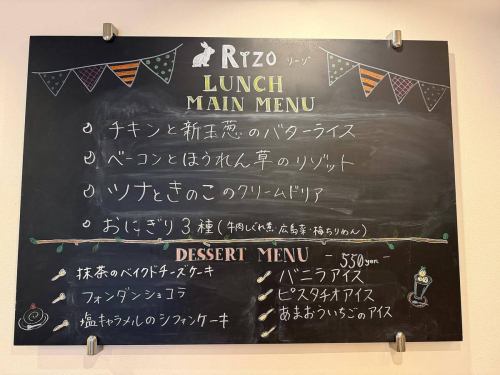 Rizo リーゾ
LUNCH
MAIN MENU
チキンと新玉葱のバターライス
ベーコンとほうれん草のリゾット
ツナときのこのクリームドリア
おにぎり3種(牛肉しぐれ煮・広島菜・梅ちりめん)
DESSERT MENU - 550yen. -
抹茶のベイクドチーズケーキ
フォンダンショコラ
塩キャラメルのシフォンケーキ
バニラアイス
ピスタチオアイス
あまおういちごのアイス